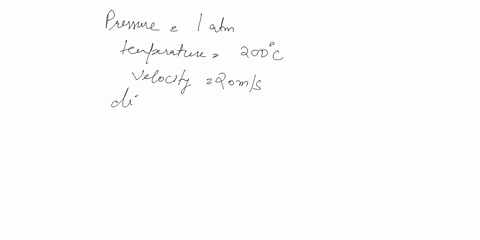 Pressure = 1 atm
temperature = 200°C
velocity = 20 m/s
di